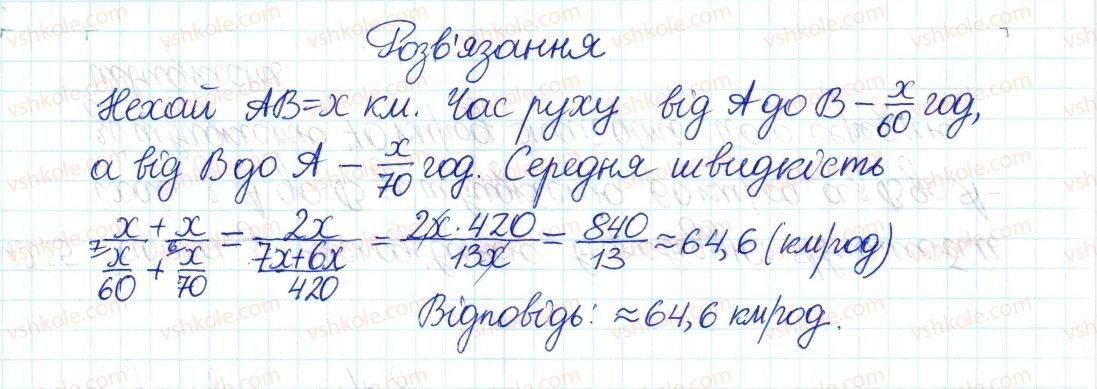 Розв'язання
Нехай AB=x км. Час руху від A до B – x/60 год,
а від B до A – x/70 год. Середня швидкість
(x+x)/(x/60 + x/70) = 2x/((7x+6x)/420) = 2x·420/13x = 840/13 ≈ 64,6 (км/год)
Відповідь: ≈ 64,6 км/год.
vshkole.com